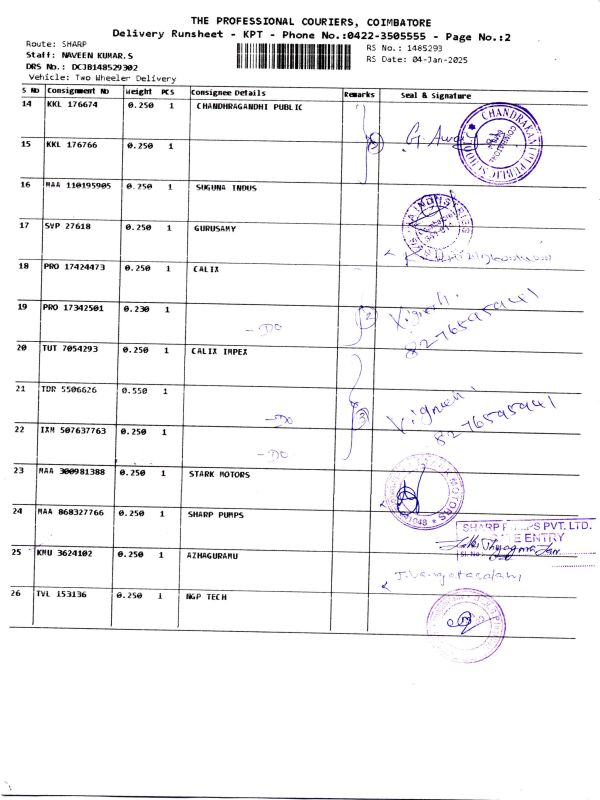 THE PROFESSIONAL COURIERS, COIMBATORE
Delivery Runsheet - KPT - Phone No.:0422-3505555 - Page No.:2
Route: SHARP RS No.: 1485293
Staff: NAVEEN KUMAR.S RS Date: 04-Jan-2025
DRS No.: DCJB148529302
Vehicle: Two Wheeler Delivery
S No Consignment No Weight PCS Consignee Details Remarks Seal & Signature
14 KKL 176674 0.250 1 CHANDHRAGANDHI PUBLIC
15 KKL 176766 0.250 1
16 MAA 110195905 0.250 1 SUGUNA INDUS
17 SVP 27618 0.250 1 GURUSAMY
18 PRO 17424473 0.250 1 CALIX
19 PRO 17342501 0.230 1 -DO 2 Vignesh. 8276595941
20 TUT 7054293 0.250 1 CALIX IMPEX
21 TDR 5506626 0.550 1 -DO 3 Vignesh. 8276595941
22 IXM 507637763 0.250 1 -DO
23 MAA 300981388 0.250 1 STARK MOTORS
24 MAA 868327766 0.250 1 SHARP PUMPS
SHARP PUMPS PVT. LTD.
GATE ENTRY
SI. No.
25 KMU 3624102 0.250 1 AZHAGURAMU
26 TVL 153136 0.250 1 NGP TECH